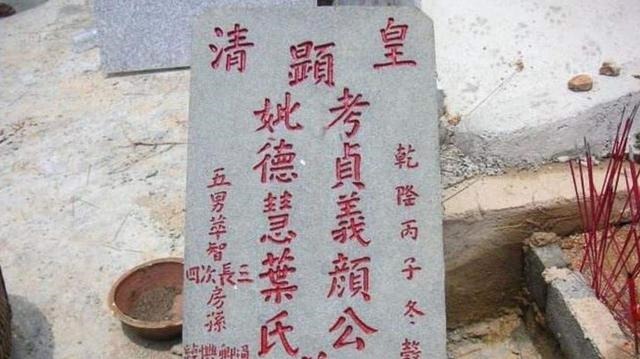 皇清
乾隆丙子冬
顯
考貞義顏公
妣德慧葉氏
五男萃智
三長次四
房孫